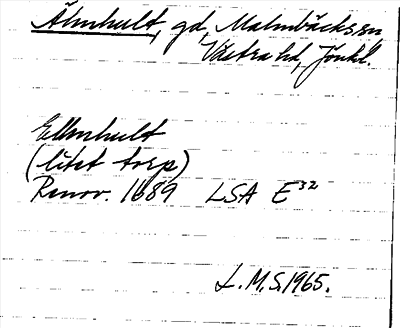 Älmhult, gd, Malmbäcks sn,
Västra hd, Jönk.l.
Ellmhult
(litet torp)
Renov. 1689 LSA E³²
L.M.S. 1965.